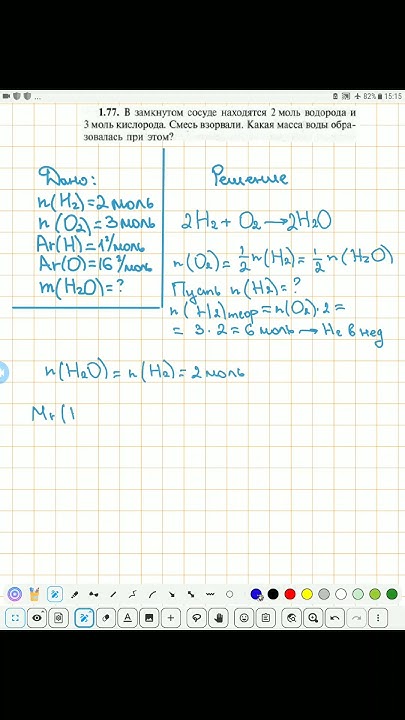 82% 15:15
1.77. В замкнутом сосуде находятся 2 моль водорода и
3 моль кислорода. Смесь взорвали. Какая масса воды обра-
зовалась при этом?
Дано:
n(H₂)=2 моль
n(O₂)=3 моль
Ar(H)=1 г/моль
Ar(O)=16 г/моль
m(H₂O)=?
Решение
2H₂ + O₂ → 2H₂O
n(O₂) = 1/2 n(H₂) = 1/2 n(H₂O)
Пусть n(H₂)=?
n(H₂)теор = n(O₂)·2 =
= 3·2 = 6 моль → H₂ в нед
n(H₂O) = n(H₂) = 2 моль
Mr(